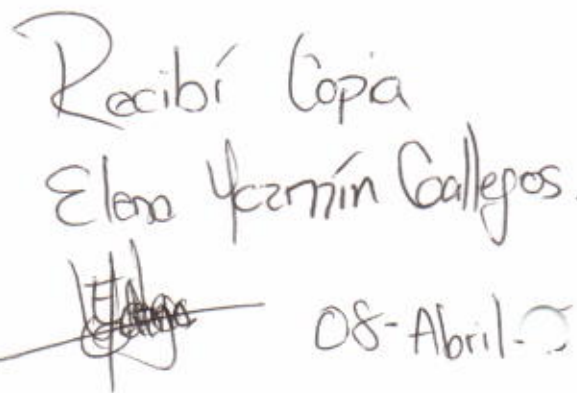 Recibí Copia
Elena Yazmín Gallegos.
08-Abril-